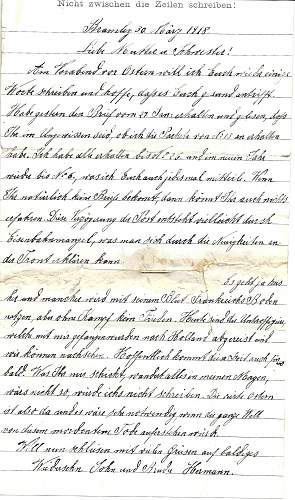 Nicht zwischen die Zeilen schreiben!
30 März 1918
Liebe Mutter u. Schwester!
Am Vorabend vor Ostern will ich Euch wieder einige
Worte schreiben und hoffe, dass es Euch gesund antrifft.
Habe gestern den Brief vom 27 Jan. erhalten und gelesen, dass
Ihr im Ungewissen seid, ob ich die Packete von erhalten
habe. Ich habe alle erhalten bis No und im neuen Jahr
wieder bis No 6, was ich Euch auch jedesmal mitteile. Wenn
Ihr natürlich kein Brief bekommt, dann könnt Ihr auch nichts
erfahren. Diese Verzögerung der Post entsteht vielleicht durch
Eisenbahnmangel, was man sich durch die Neuigkeiten an
der Front erklären kann.
Es geht ja
und mancher wird mit seinem Blut Frankreichs Boden
netzen, aber ohne Kampf kein Frieden. Heute sind die Unteroffiziere,
welche mit mir gefangen wurden nach Holland abgereist und
wir können nachsehen. Hoffentlich kommt die Zeit auch für uns
bald. Was Ihr mir schickt, wandert alles in meinen Magen,
wäre nicht so, würde ichs nicht schreiben.
ist also da anders wäre sehr notwendig wenn die ganze Welt
von diesem mordenden Tode auferstehen würde.
Will nun schliessen mit vielen Grüssen auf baldiges
Wiedersehn Sohn und Bruder Hermann.